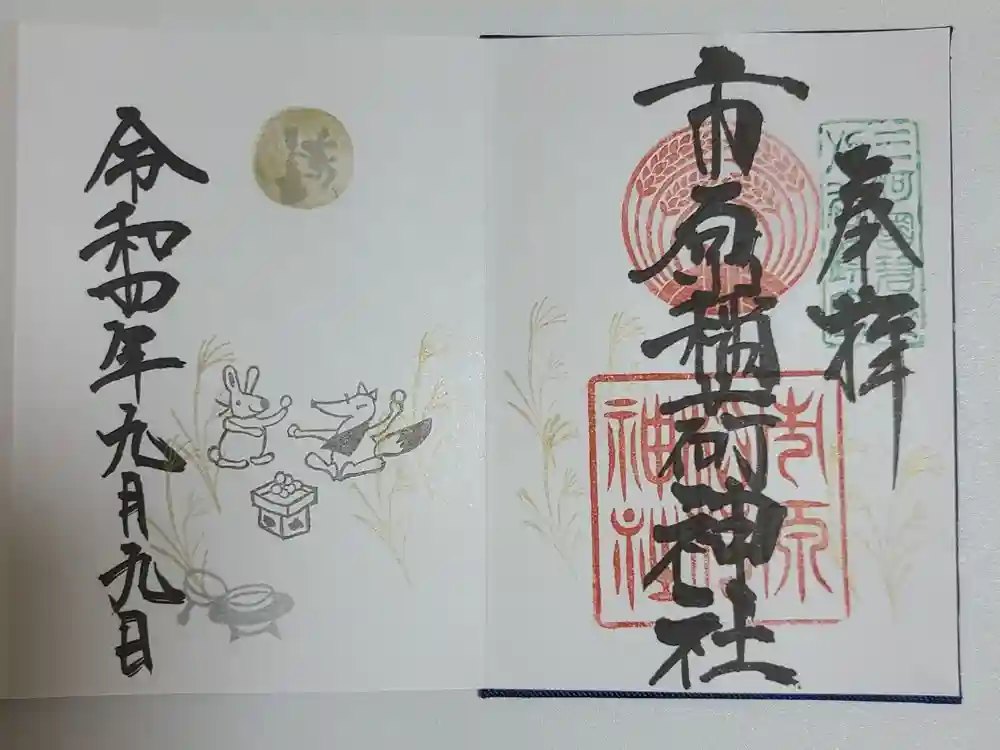 奉拝
市原稲荷神社
市原稲荷神社
令和四年九月九日